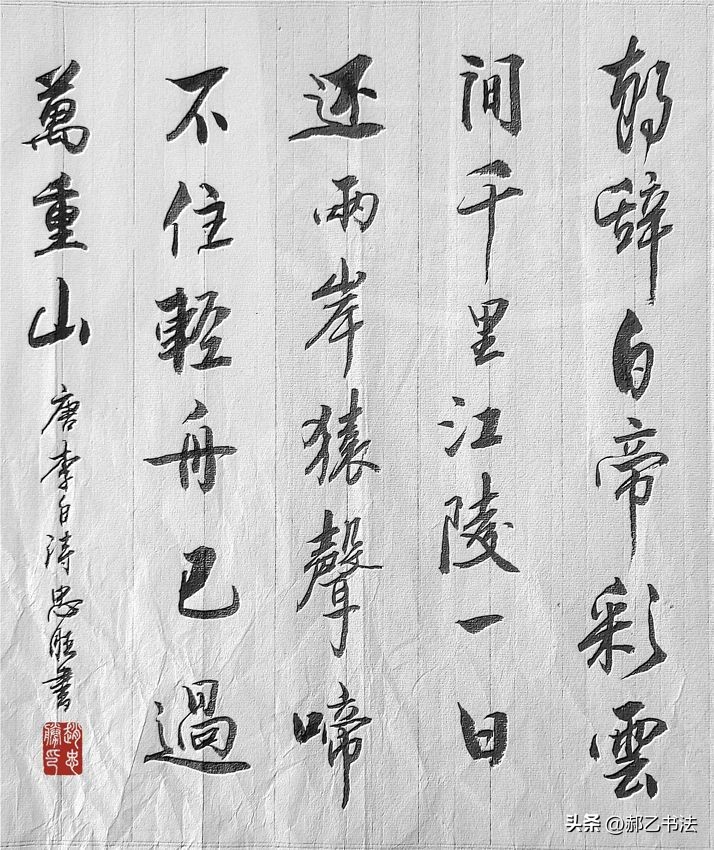 朝辞白帝彩雲
間千里江陵一日
还兩岸猿聲啼
不住輕舟已過
萬重山
唐李白詩忠胜書
頭条 @郝乙书法